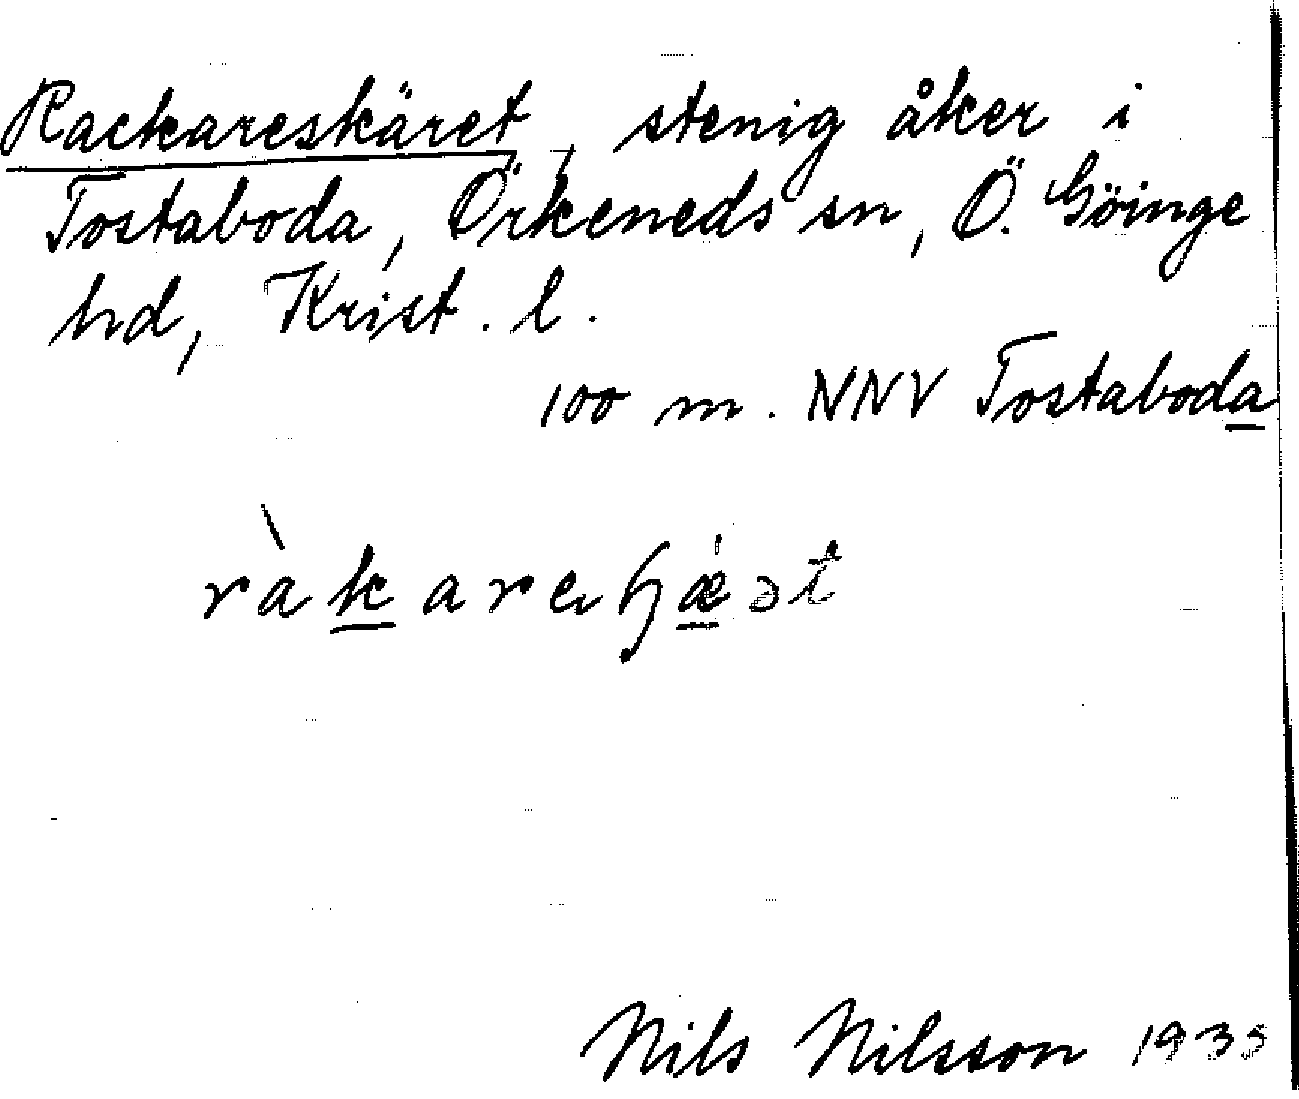 Rackareskäret, stenig åker i
Tostaboda, Örkeneds sn, Ö. Göinge
hd, Krist. l.
100 m. NNV Tostaboda
Nils Nilsson 1935